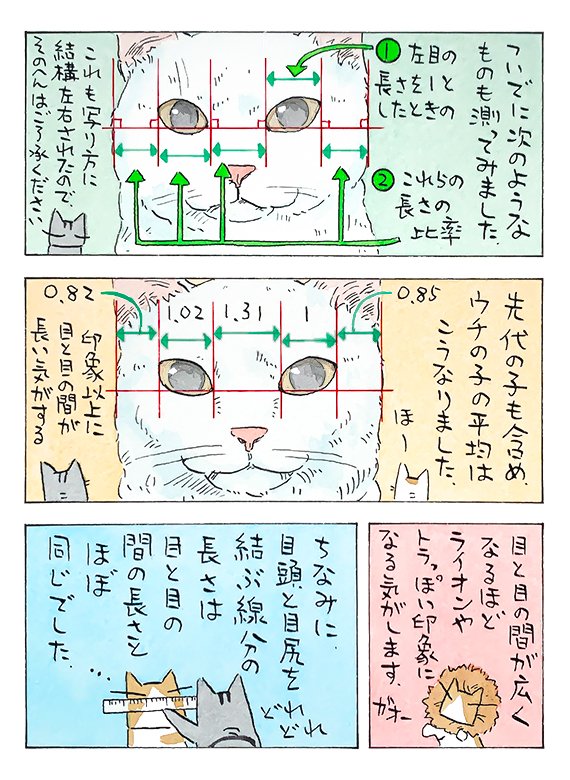 ついでに次のような
ものも測ってみました。
① 左目の
長さを1と
したときの
② これらの
長さの
比率
これも写り方に
結構左右されたので、
そのへんはご了承ください
先代の子も含め、
ウチの子の平均は
こうなりました。
ほー
0.85
1
1.31
1.02
0.82
印象以上に
目と目の間が
長い気がする
目と目の間が広く
なるほど
ライオンや
トラっぽい印象に
なる気がします。
ガオー
ちなみに、
目頭と目尻を
結ぶ線分の
長さは
目と目の
間の長さと
ほぼ
同じでした。
…
どれ
どれ